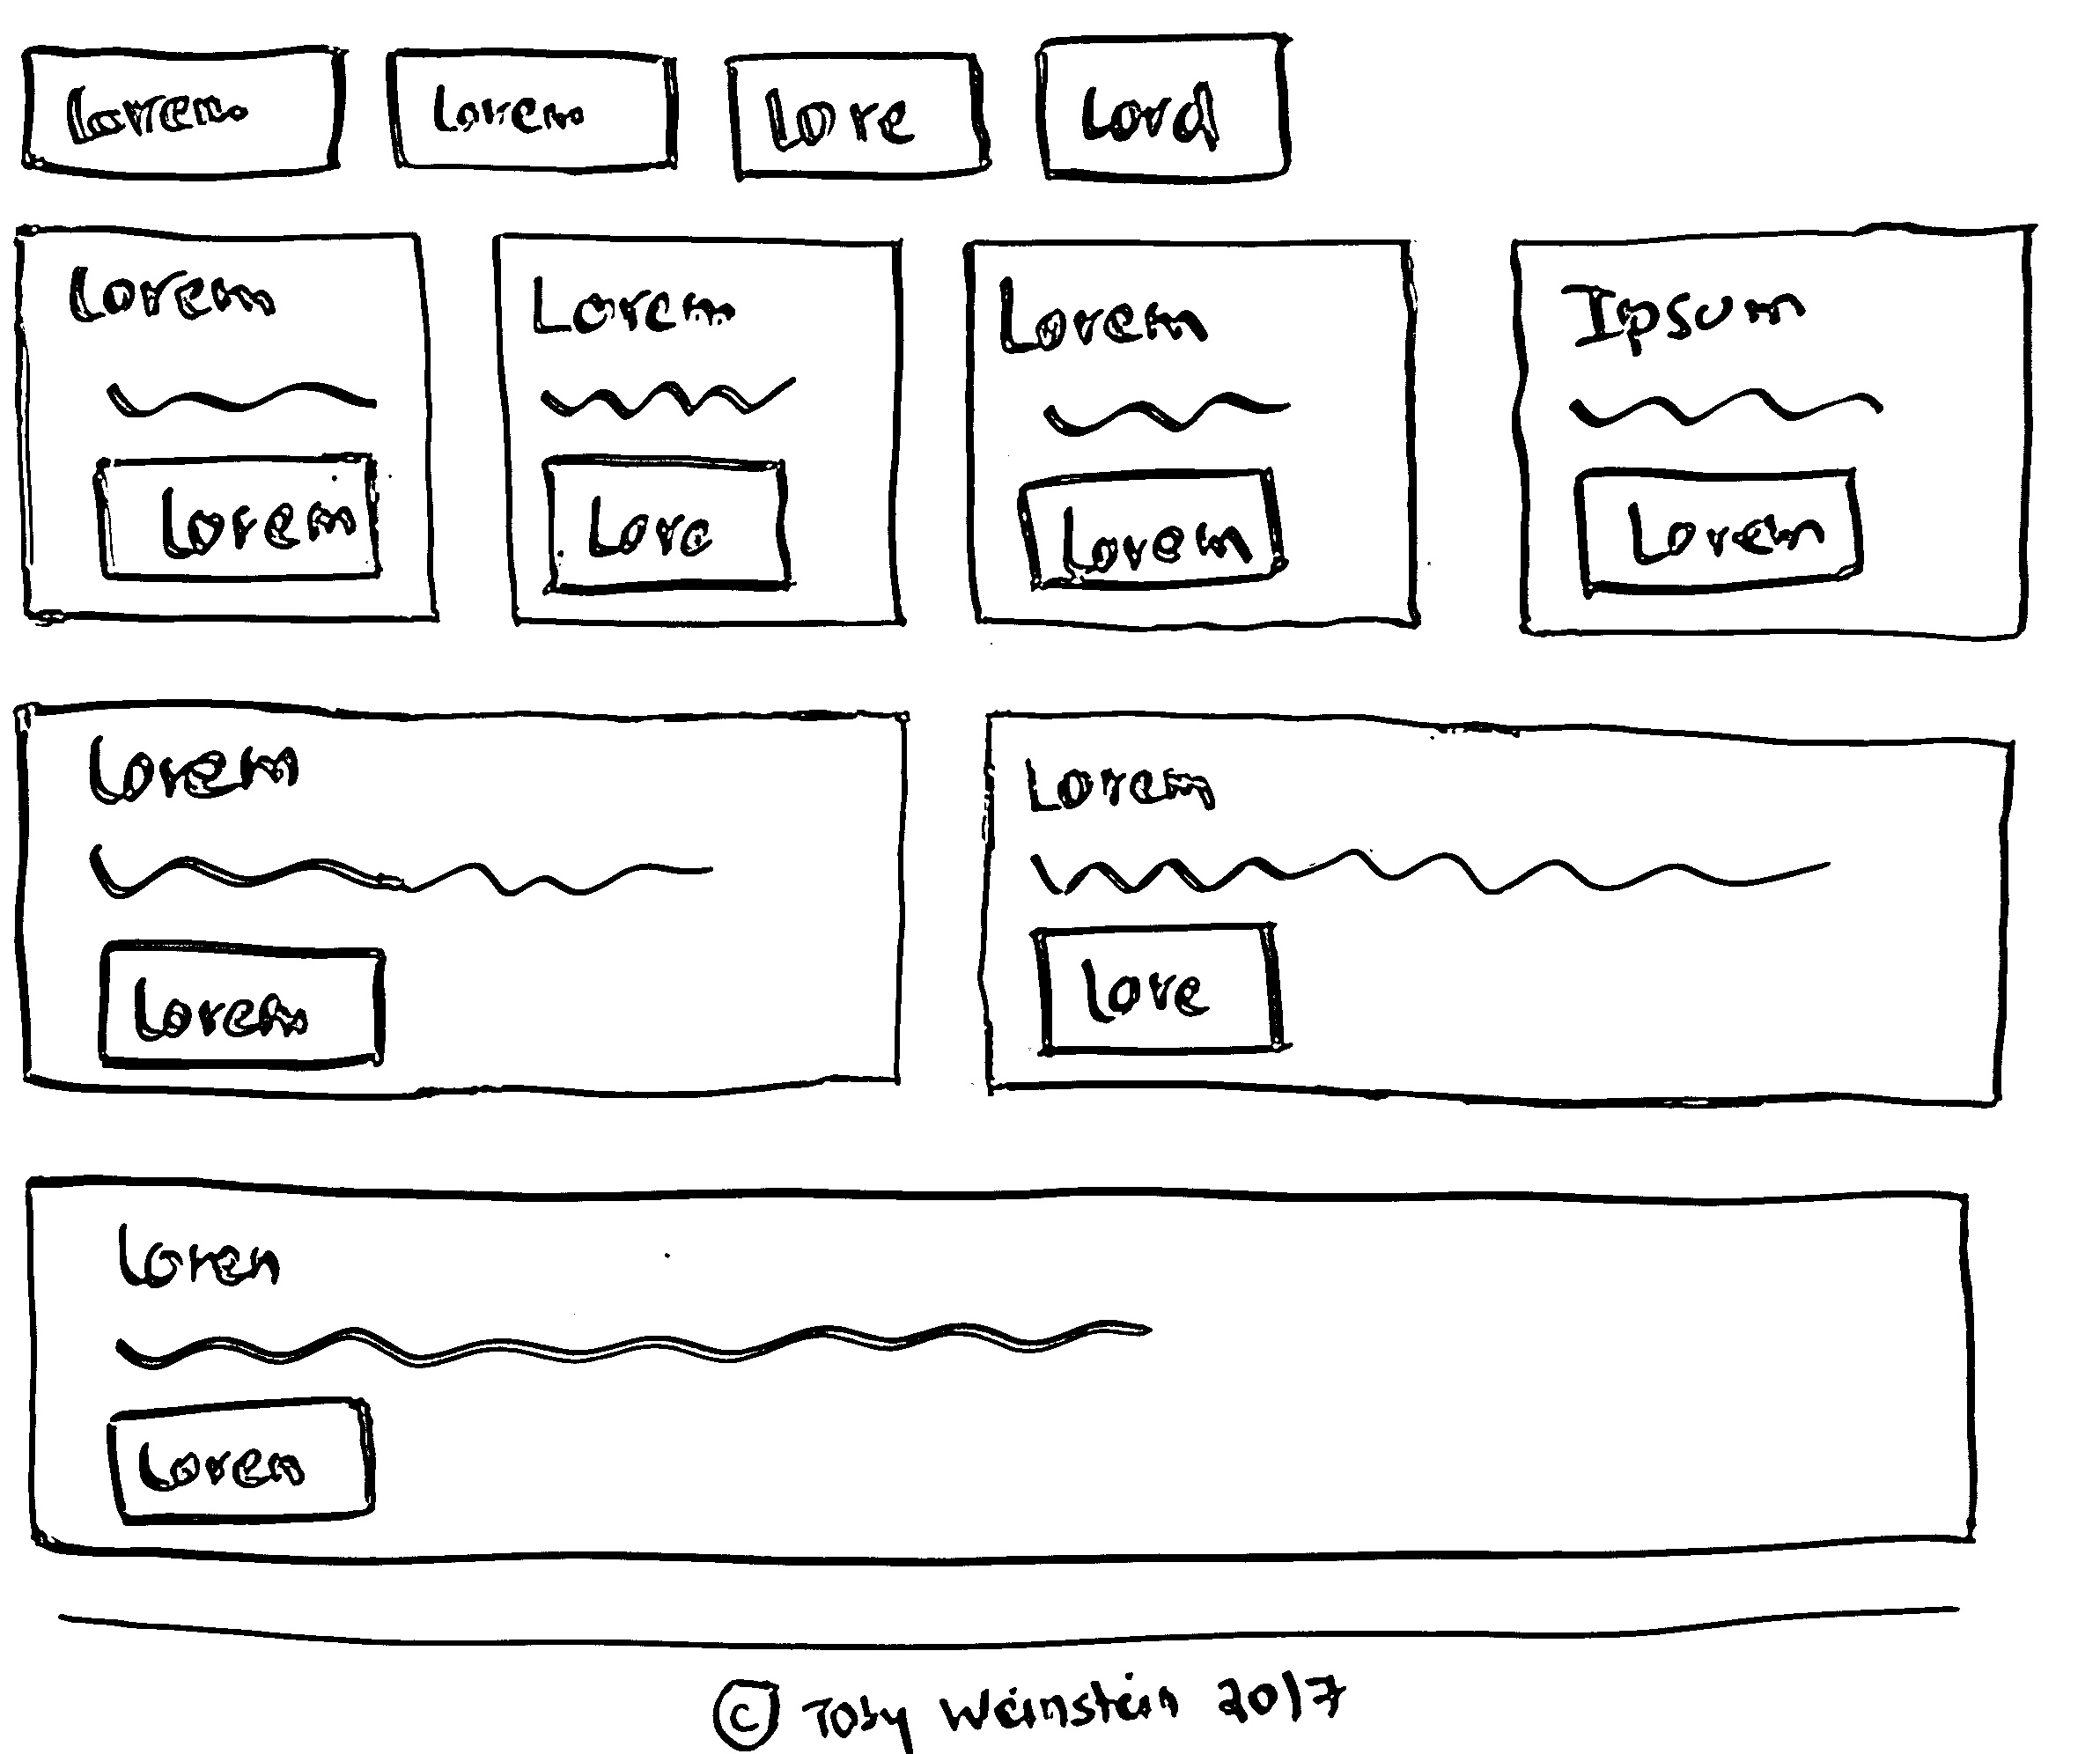 Lorem Lorem Lore Lord
Lorem Lorem Lorem Ipsum
Lorem Lore Lorem Lorem
Lorem Lorem
Lorem Lore
Loren
Loren
© Toby Weinstein 2017